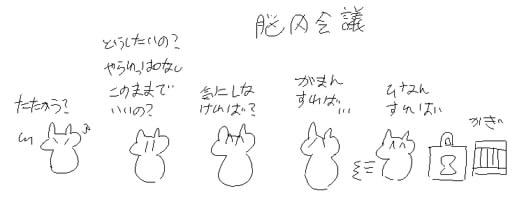 脳内会議
たたかう?
どうしたいの?
やられっぱなし
このままで
いいの?
気にしな
ければ?
がまん
すれば…
ひなん
すればい
かぎ